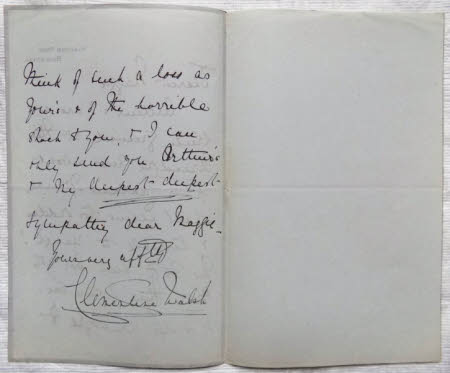 think of such a loss as
yours & of the horrible
shock to you, & I can
only send you Arthur's
& my deepest deepest
sympathy dear Maggie.
Yours very affly
Clementine Walsh